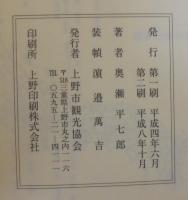 発行 第一刷 平成四年六月
第二刷 平成八年十月
著者 奥瀬平七郎
装幀 濵邉萬吉
発行者 上野市観光協会
〒518 三重県上野市丸之内一一六
TEL 〇五九五-二一-四一一一
印刷所 上野印刷株式会社